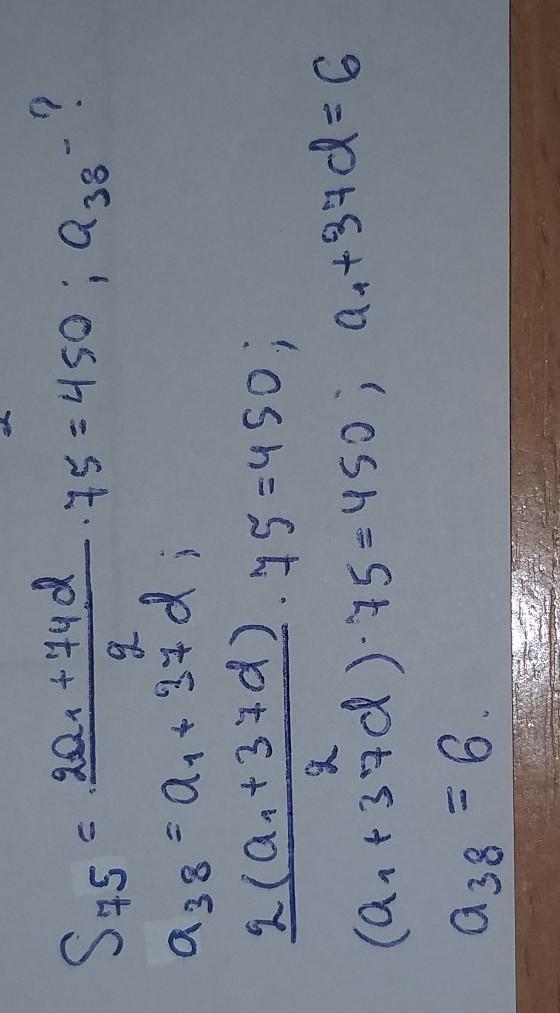 S₇₅ = (2a₁ + 74d)/2 · 75 = 450 ; a₃₈ - ?
a₃₈ = a₁ + 37d ;
2(a₁ + 37d)/2 · 75 = 450 ;
(a₁ + 37d) · 75 = 450 ; a₁ + 37d = 6
a₃₈ = 6.